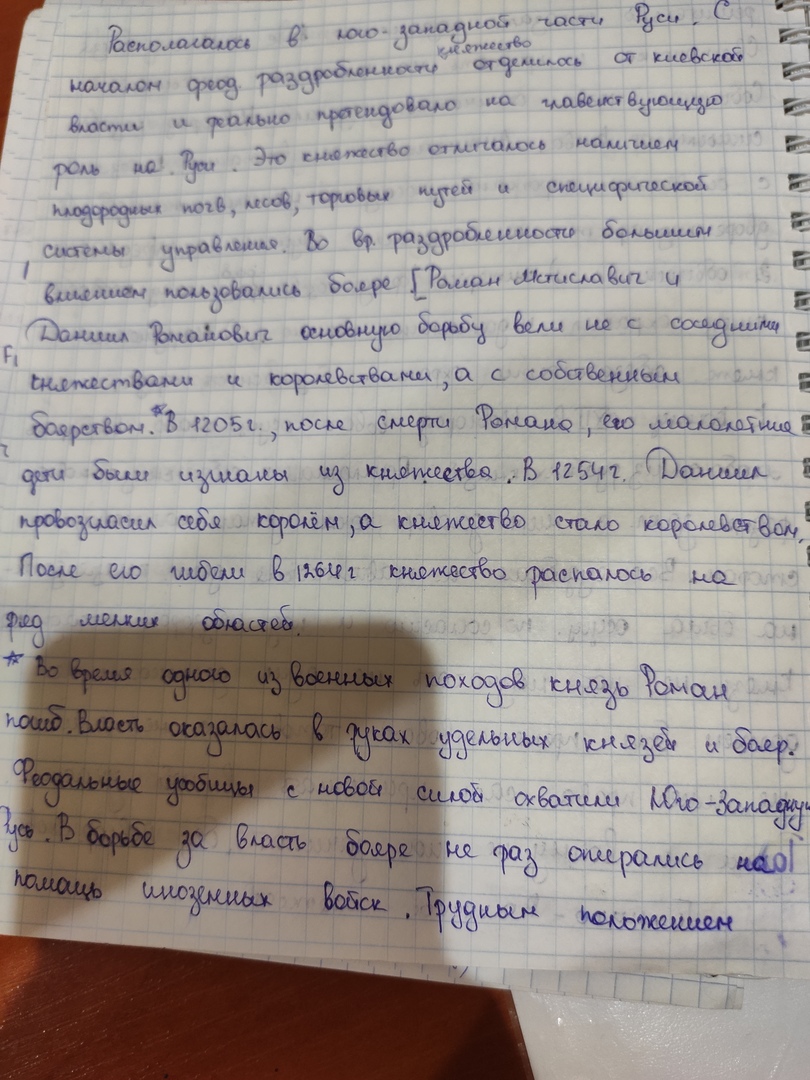 Располагалось в юго-западной части Руси. С
началом феод. раздробленности княжество отделилось от киевской
власти и реально претендовало на главенствующую
роль на Руси. Это княжество отличалось наличием
плодородных почв, лесов, торговых путей и специфической
системы управления. Во вр. раздробленности большим
влиянием пользовались бояре [Роман Мстиславич и
Даниил Романович основную борьбу вели не с соседними
княжествами и королевствами, а с собственным
боярством.* В 1205г., после смерти Романа, его малолетние
дети были изгнаны из княжества. В 1254г. Даниил
провозгласил себя королём, а княжество стало королевством.
После его гибели в 1264г княжество распалось на
ряд мелких областей.
* Во время одного из военных походов князь Роман
погиб. Власть оказалась в руках удельных князей и бояр.
Феодальные усобицы с новой силой охватили Юго-Западную
Русь. В борьбе за власть бояре не раз опирались на
помощь иноземных войск. Трудным положением